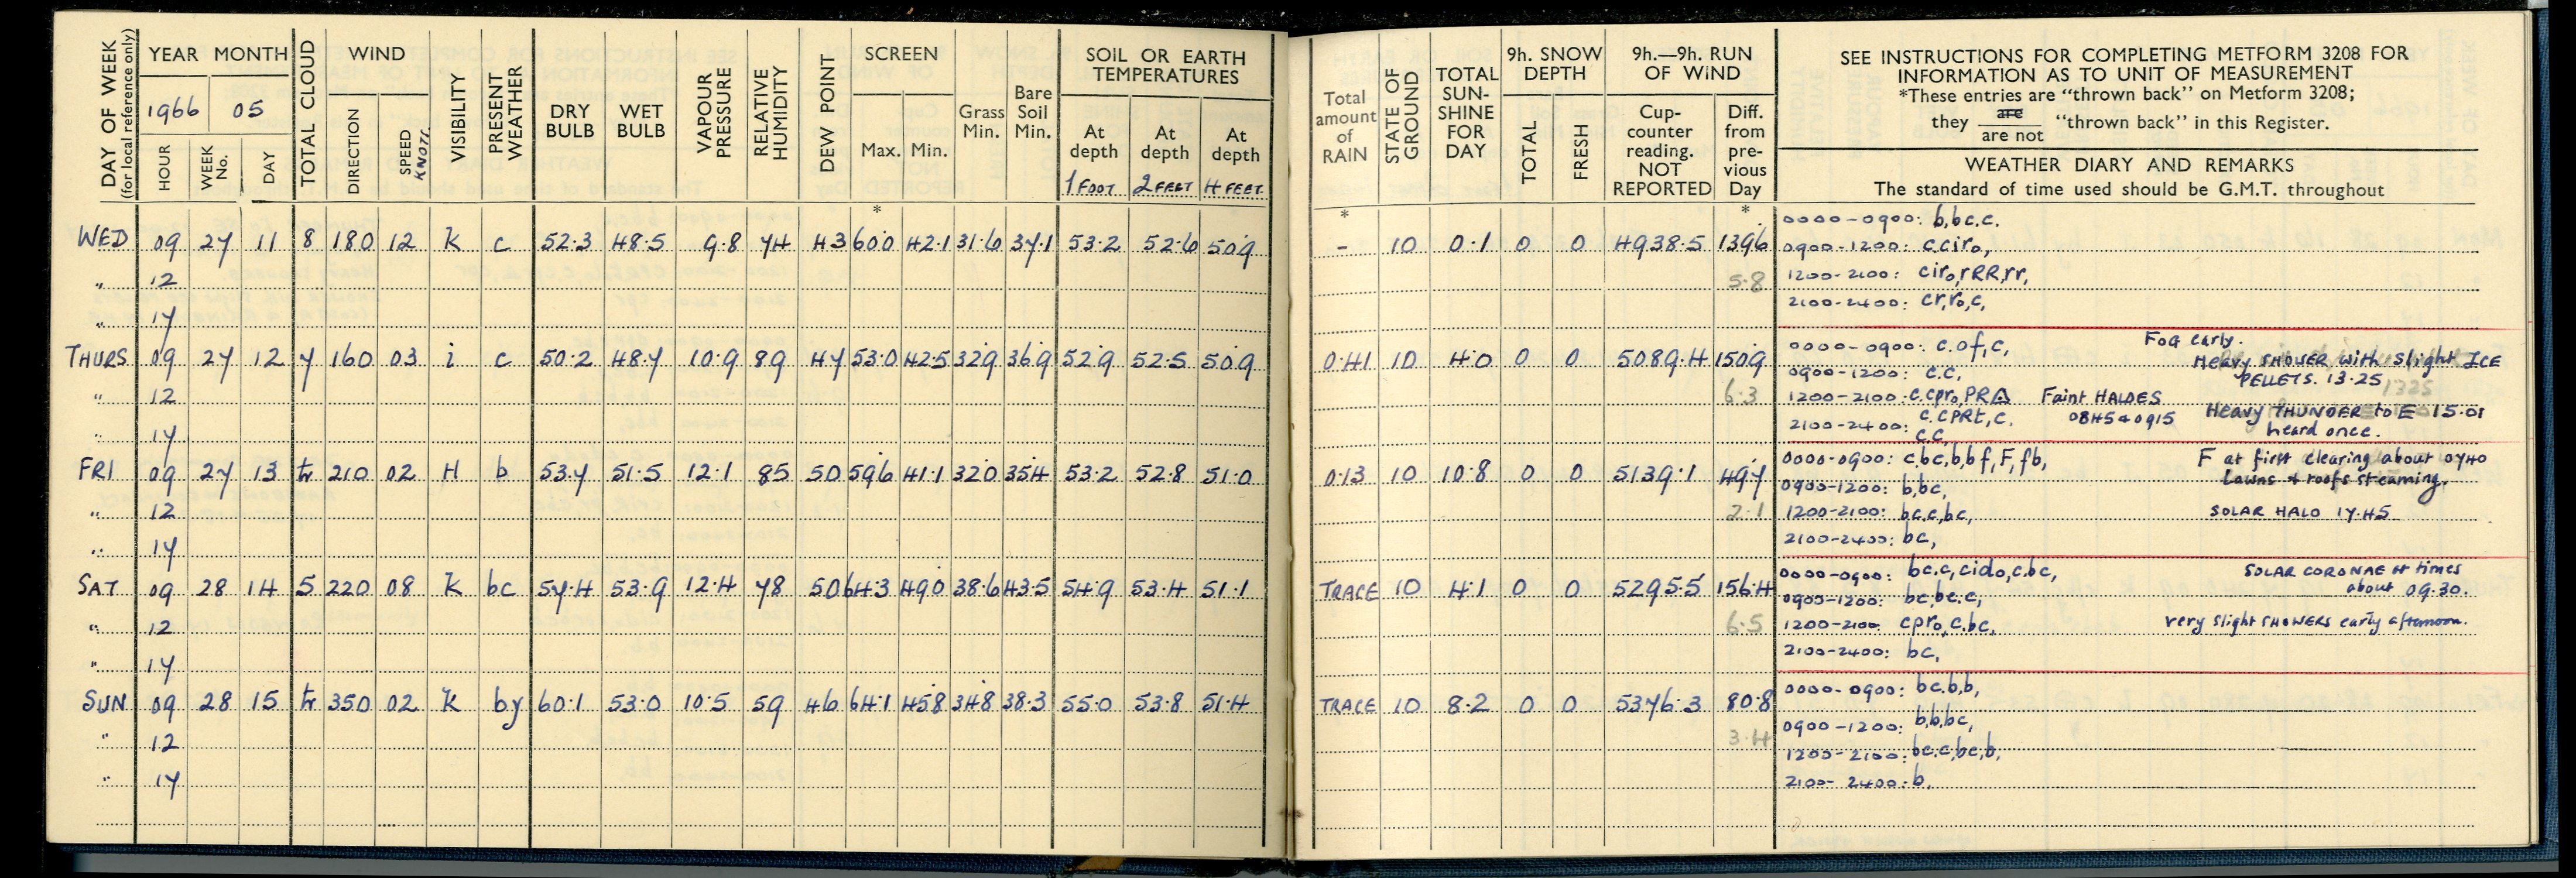 DAY OF WEEK
(for local reference only)
YEAR MONTH
1966 05
HOUR
WEEK No.
DAY
TOTAL CLOUD
WIND
DIRECTION
SPEED
KNOTS
VISIBILITY
PRESENT WEATHER
DRY BULB
WET BULB
VAPOUR PRESSURE
RELATIVE HUMIDITY
DEW POINT
SCREEN
Max. Min.
Grass Min.
Bare Soil Min.
SOIL OR EARTH
TEMPERATURES
At depth 1 FOOT
At depth 2 FEET
At depth 4 FEET
*
WED 09 27 11 8 180 12 K c 52.3 48.5 9.8 74 43 60.0 42.1 31.6 37.1 53.2 52.6 50.9
" 12
" 17
THURS 09 27 12 7 160 03 i c 50.2 48.7 10.9 89 47 53.0 42.5 32.9 36.9 52.9 52.5 50.9
" 12
" 17
FRI 09 27 13 tr 210 02 H b 53.7 51.5 12.1 85 50 59.6 41.1 32.0 35.4 53.2 52.8 51.0
" 12
" 17
SAT 09 28 14 5 220 08 K bc 57.4 53.9 12.4 78 50 64.3 49.0 38.6 43.5 54.9 53.4 51.1
" 12
" 17
SUN 09 28 15 tr 350 02 K by 60.1 53.0 10.5 59 46 64.1 45.8 34.8 38.3 55.0 53.8 51.4
" 12
" 17
Total amount of RAIN
STATE OF GROUND
TOTAL SUN-SHINE FOR DAY
9h. SNOW DEPTH
TOTAL
FRESH
9h.—9h. RUN OF WIND
Cup-counter reading. NOT REPORTED
Diff. from pre-vious Day
* *
- 10 0.1 0 0 4938.5 139.6
5.8
0.41 10 4.0 0 0 5089.4 150.9
6.3
0.13 10 10.8 0 0 5139.1 49.7
2.1
TRACE 10 4.1 0 0 5295.5 156.4
6.5
TRACE 10 8.2 0 0 5376.3 80.8
3.4
SEE INSTRUCTIONS FOR COMPLETING METFORM 3208 FOR
INFORMATION AS TO UNIT OF MEASUREMENT
*These entries are "thrown back" on Metform 3208;
they are / are not "thrown back" in this Register.
WEATHER DIARY AND REMARKS
The standard of time used should be G.M.T. throughout
0000-0900: b,bc.c.
0900-1200: c.ciro,
1200-2100: ciro,rRR,rr,
2100-2400: cr,ro,c,
0000-0900: c.of,c, Fog early.
0900-1200: c.c, Heavy SHOWER with slight ICE
PELLETS. 13.25
1325
1200-2100: c.cpro,PR Faint HALOES
0845 & 0915
c.cPRt,c. Heavy THUNDER to E 15.01
heard once.
2100-2400: c.c,
0000-0900: c,bc,b,bf,F,fb, F at first clearing about 0740
0900-1200: b,bc, Lawns & roofs steaming.
1200-2100: bc,c,bc, SOLAR HALO 17.45
2100-2400: bc,
0000-0900: bc.c,cido,c,bc, SOLAR CORONAE at times
0900-1200: bc,bc.c, about 09.30.
1200-2100 cpro,c.bc, very slight SHOWERS early afternoon.
2100-2400: bc,
0000-0900: bc.b,b,
0900-1200: b,b,bc,
1200-2100: bc.c,bc,b,
2100-2400: b,